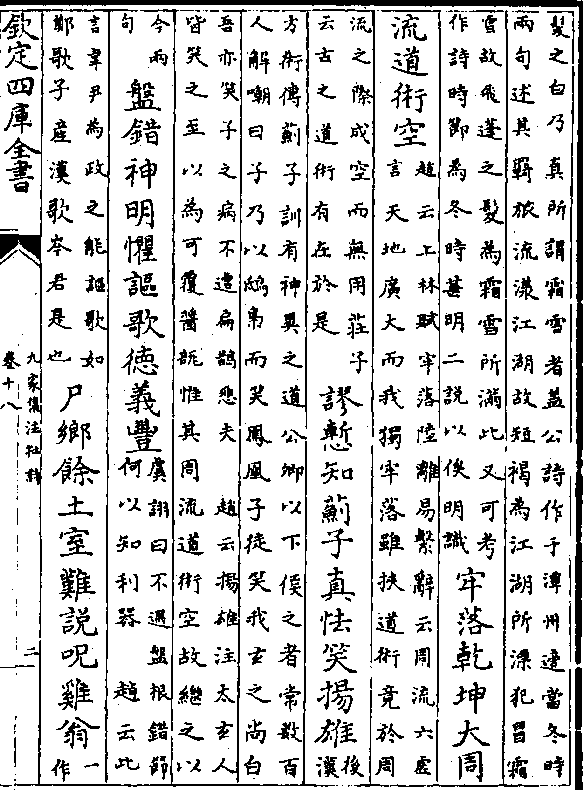 髮之白乃真所謂霜雪者蓋公詩作于潭州適當冬時
兩句述其羇旅流漾江湖故短褐為江湖所深犯冒霜
雪故飛蓬之髮為霜雪所滿此又可考
作詩時節為冬時甚明二說以俟明識
牢落乾坤大周
流道術空
趙云上林賦牢落陸離易繫辭云周流六虛
言天地廣大而我獨牢落雖挾道術竟於周
流之際成空而無用莊子
云古之道術有在於是
謬慙知薊子真怯笑揚雄
後
漢
方術傳薊子訓有神異之道公卿以下俟之者常數百
人解嘲曰子乃以鴟梟而笑鳳凰子徒笑我玄之尚白
吾亦笑子之病不遭扁鵲悲夫 趙云揚雄注太玄人
皆笑之至以為可覆醬瓿惟其周流道術空故繼之以
今兩
句
盤錯神明懼謳歌德義豐
虞詡曰不遇盤根錯節
何以知利器 趙云此
言韋尹為政之能謳歌如
鄭歌子産漢歌岑君是也
尸鄉餘土室難說呪雞翁
一
作
欽定四庫全書
九家集注杜詩
卷十八
二